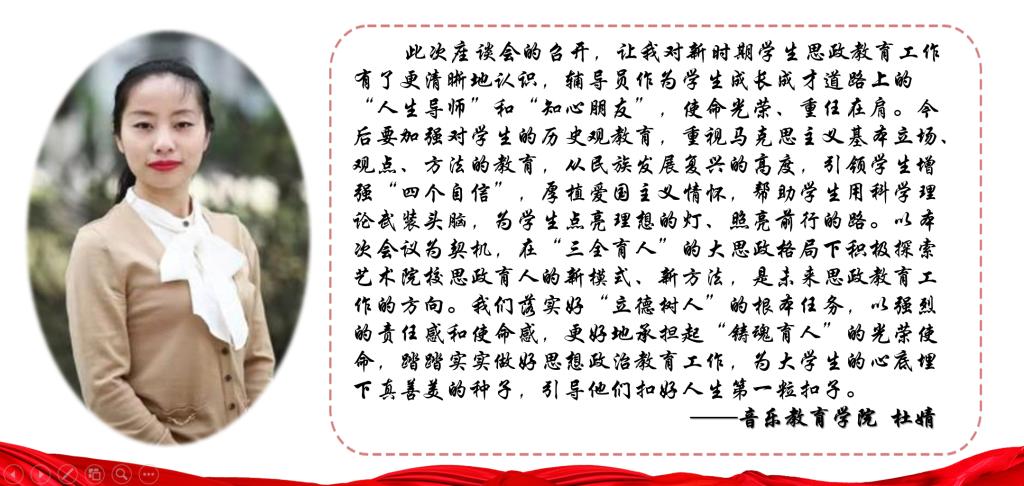 此次座谈会的召开，让我对新时期学生思政教育工作
有了更清晰地认识，辅导员作为学生成长成才道路上的
“人生导师”和“知心朋友”，使命光荣、重任在肩。今
后要加强对学生的历史观教育，重视马克思主义基本立场、
观点、方法的教育，从民族发展复兴的高度，引领学生增
强“四个自信”，厚植爱国主义情怀，帮助学生用科学理
论武装头脑，为学生点亮理想的灯、照亮前行的路。以本
次会议为契机，在“三全育人”的大思政格局下积极探索
艺术院校思政育人的新模式、新方法，是未来思政教育工
作的方向。我们落实好“立德树人”的根本任务，以强烈
的责任感和使命感，更好地承担起“铸魂育人”的光荣使
命，踏踏实实做好思想政治教育工作，为大学生的心底埋
下真善美的种子，引导他们扣好人生第一粒扣子。
——音乐教育学院 杜婧